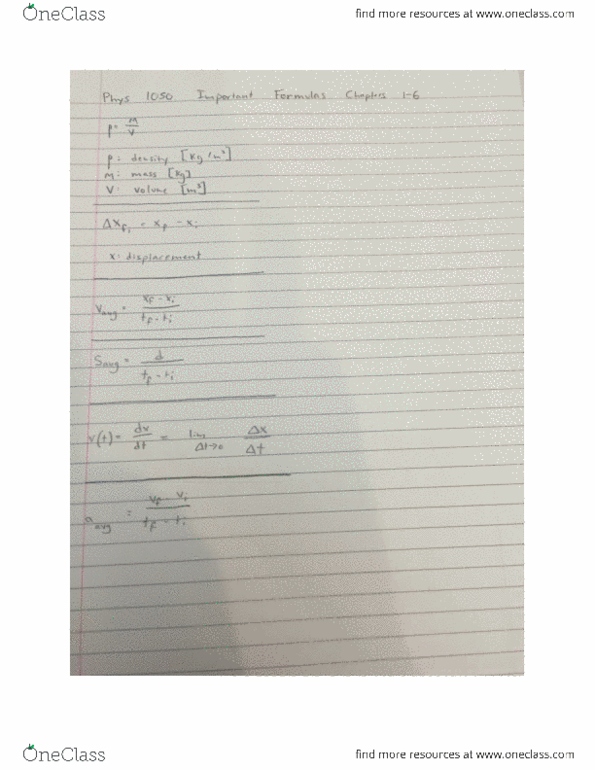 OneClass
find more resources at www.oneclass.com
Phys 1050 Important Formulas Chapters 1-6
ρ = M/V
ρ: density [Kg/m³]
M: mass [Kg]
V: volume [m³]
Δx_fi = x_f - x_i
x: displacement
V_avg = (x_f - v_i)/(t_f - t_i)
S_avg = d/(t_f - t_i)
v(t) = dv/dt = lim Δt→0 Δx/Δt
a_avg = (v_f - v_i)/(t_f - t_i)
OneClass
find more resources at www.oneclass.com